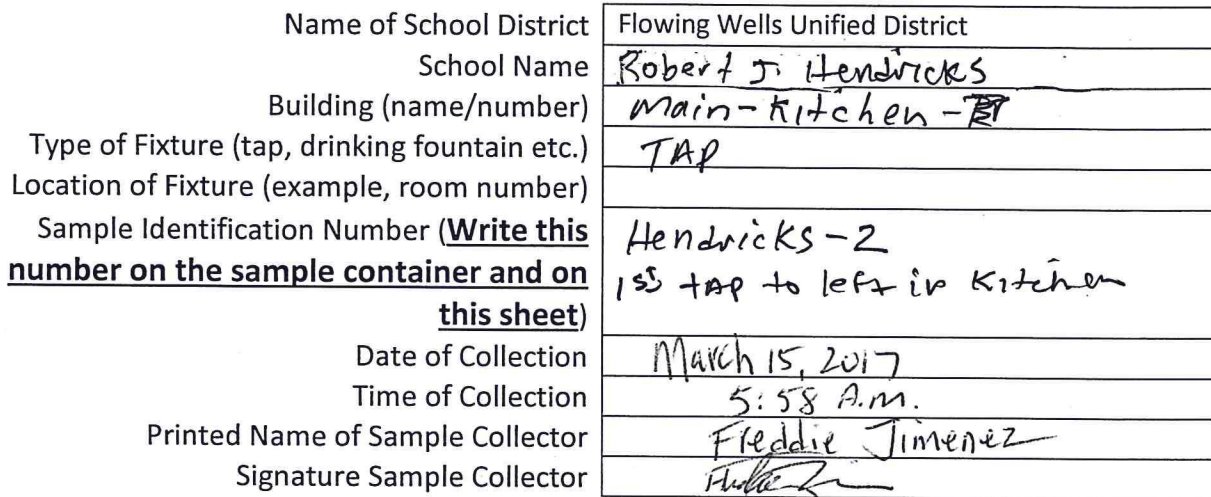 Name of School District Flowing Wells Unified District
School Name Robert J. Hendricks
Building (name/number) Main-Kitchen-
Type of Fixture (tap, drinking fountain etc.) TAP
Location of Fixture (example, room number)
Sample Identification Number (Write this Hendricks-2
number on the sample container and on 1st tap to left in Kitchen
this sheet)
Date of Collection March 15, 2017
Time of Collection 5:58 A.m.
Printed Name of Sample Collector Freddie Jimenez
Signature Sample Collector